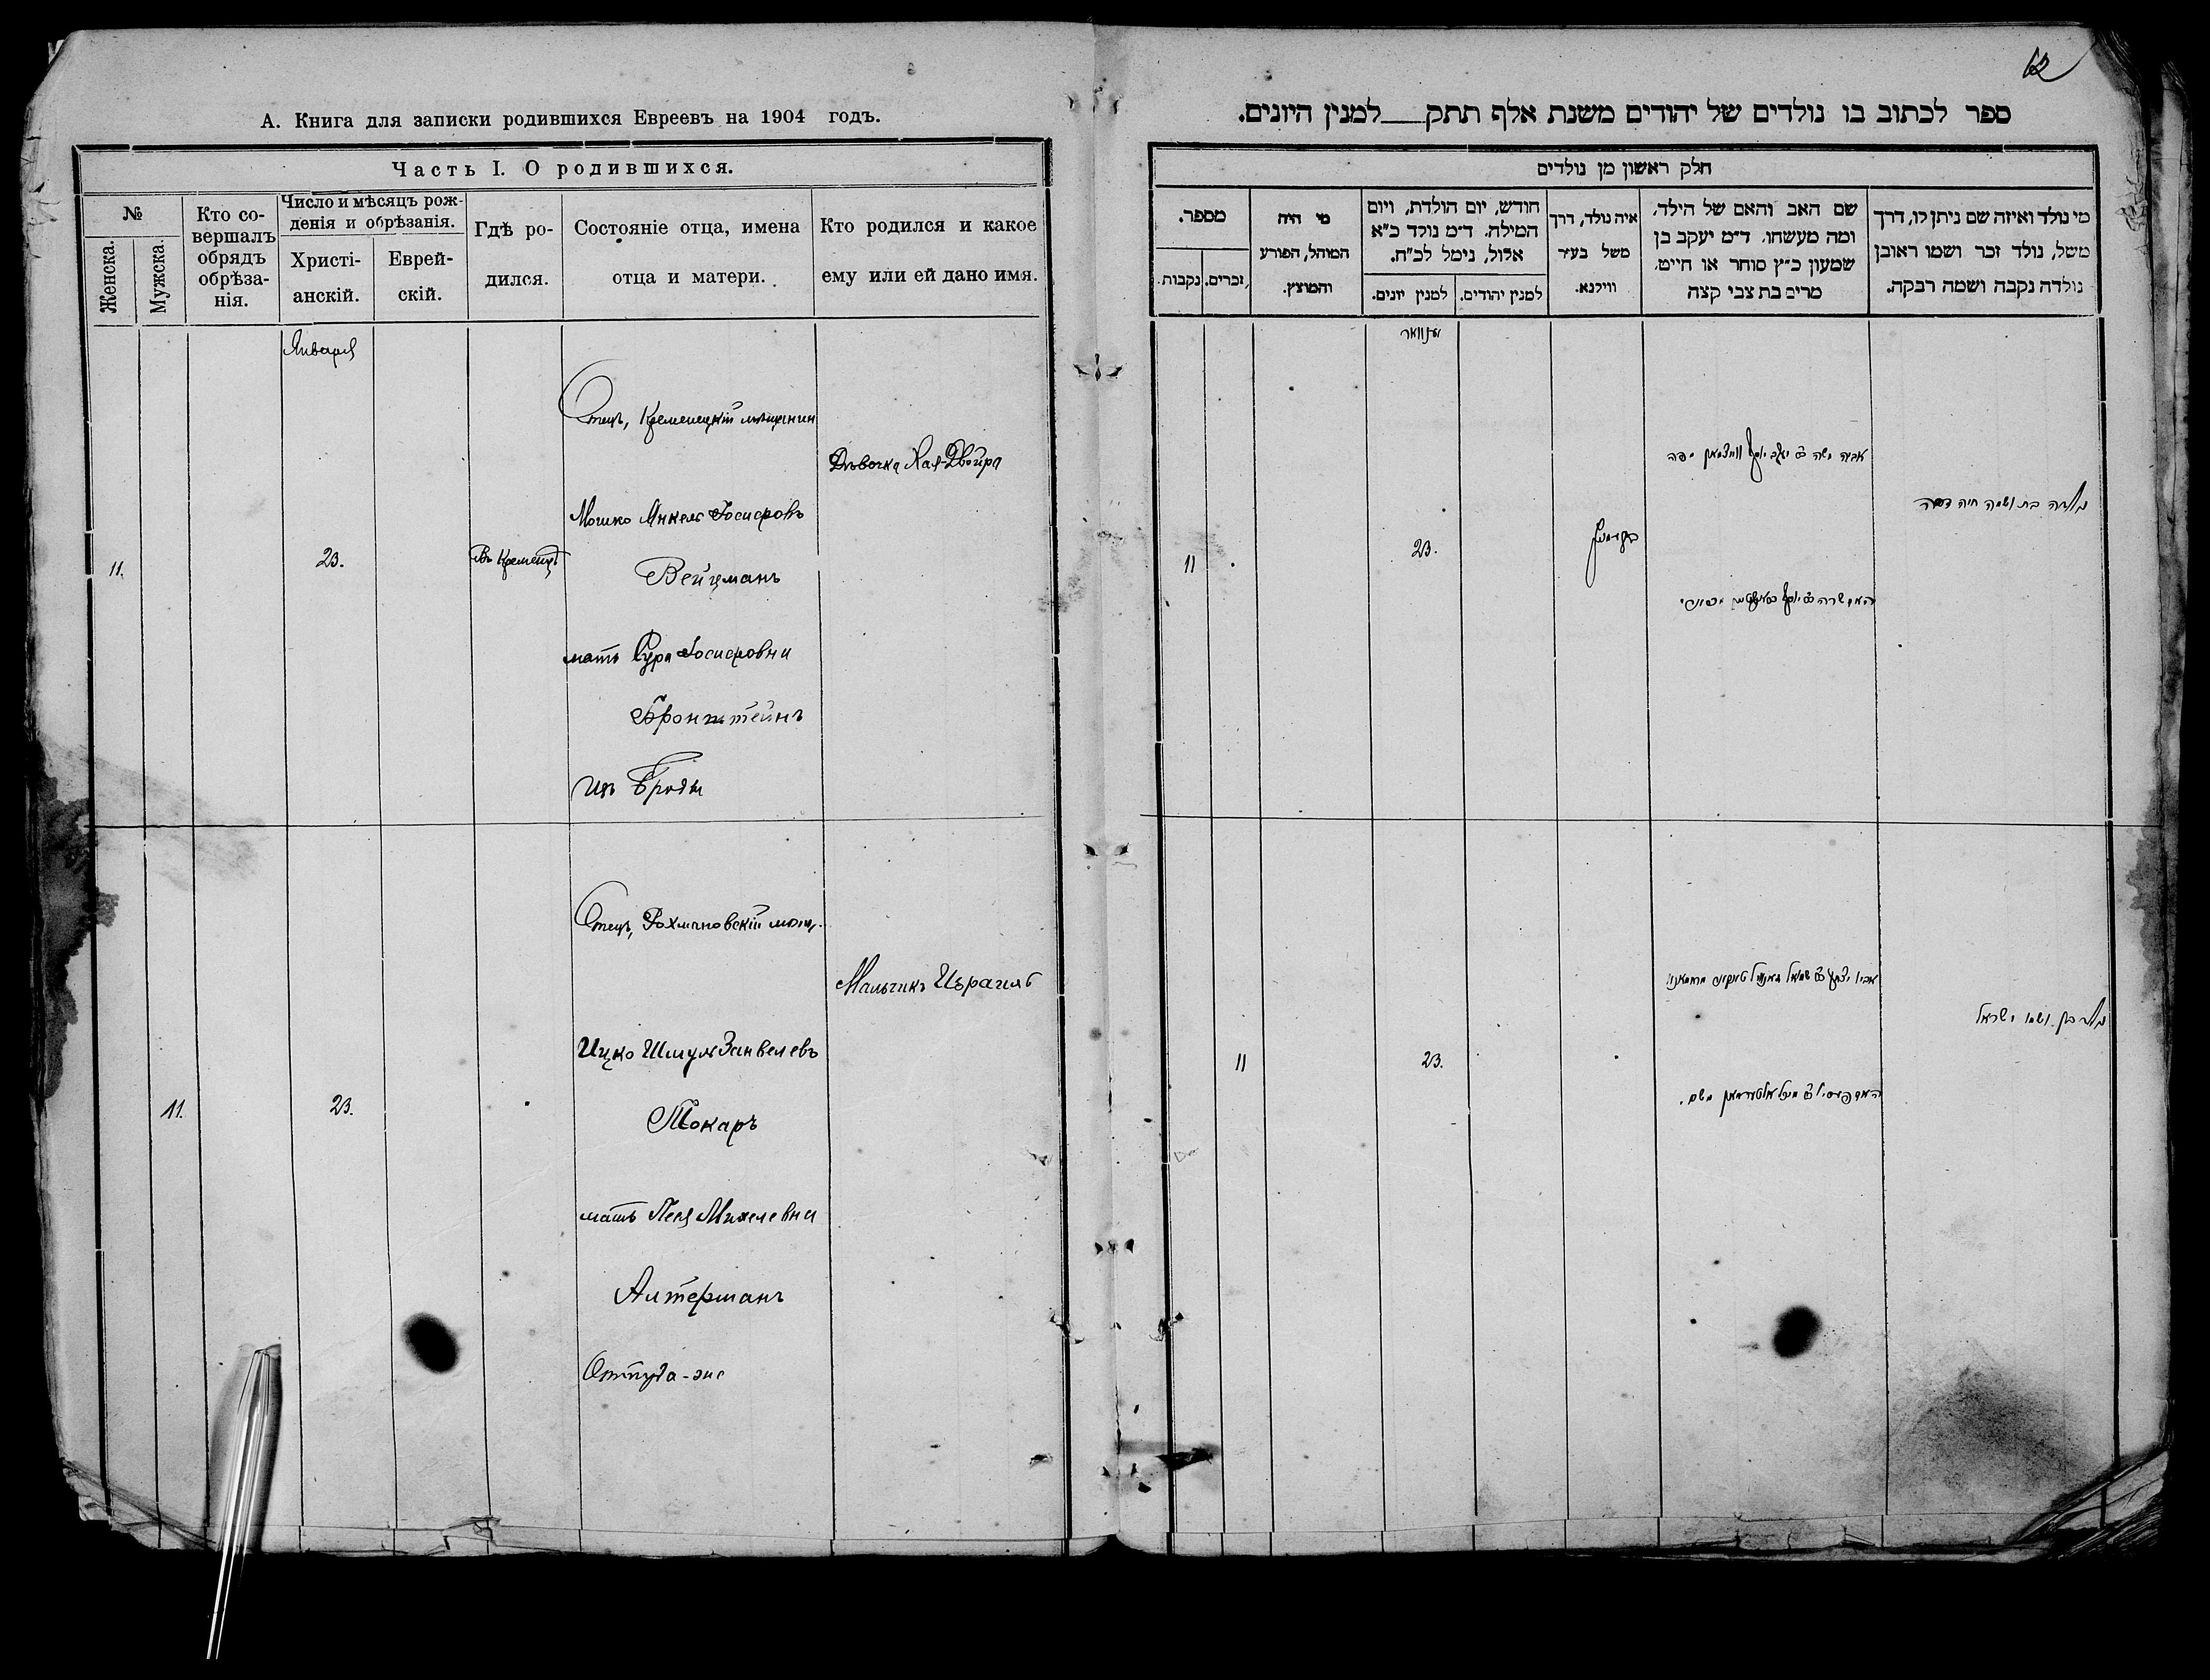 А. Книга для записки родившихся Евреевъ на 1904 годъ.
Часть I. О родившихся.
№
Женска.
Мужска.
Кто со-
вершалъ
обрядъ
обрѣза-
нія.
Число и мѣсяцъ рож-
денія и обрѣзанія.
Христі-
анскій.
Еврей-
скій.
Гдѣ ро-
дился.
Состояніе отца, имена
отца и матери.
Кто родился и какое
ему или ей дано имя.
Января
11.
23.
Въ Кременцѣ
Отецъ, Кременецкій мѣщанинъ
Мошко Янкель Іосифовъ
Вейцманъ
мать Сура Іосифовна
Бронштейнъ
изъ Броды
Дѣвочка Хая-Двойра
11.
23.
Отецъ, Рохмановскій мѣщ.
Ицко Шмуль Занвелевъ
Токарь
мать Песя Михелевна
Алтерманъ
Оттуда-же
Мальчикъ Израиль
62
ספר לכתוב בו נולדים של יהודים משנת אלף תתק __ למנין היונים.
חלק ראשון מן נולדים
מי נולד ואיזה שם ניתן לו, דרך
משל, נולד זכר ושמו ראובן
נולדה נקבה ושמה רבקה.
שם האב והאם של הילד,
ומה מעשהו. ד״מ יעקב בן
שמעון כ״ץ סוחר או חייט,
מרים בת צבי קצה
איה נולד, דרך
משל בעיר
ווילנא.
חודש, יום הולדת, ויום
המילה. ד״מ נולד כ״א
אלול, נימל לכ״ח.
למנין יהודים.
למנין יונים.
מי היה
המוהל, הפורע
והמוצץ.
מספר.
זכרים.
נקבות.
יאנוואר
נולדה בת ושמה חיה דבורה
23.
11
נולד בן ושמו ישראל
23.
11